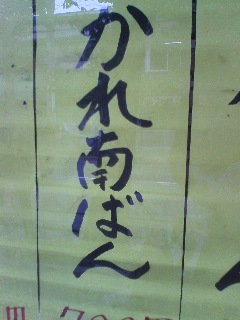 かれ南ばん